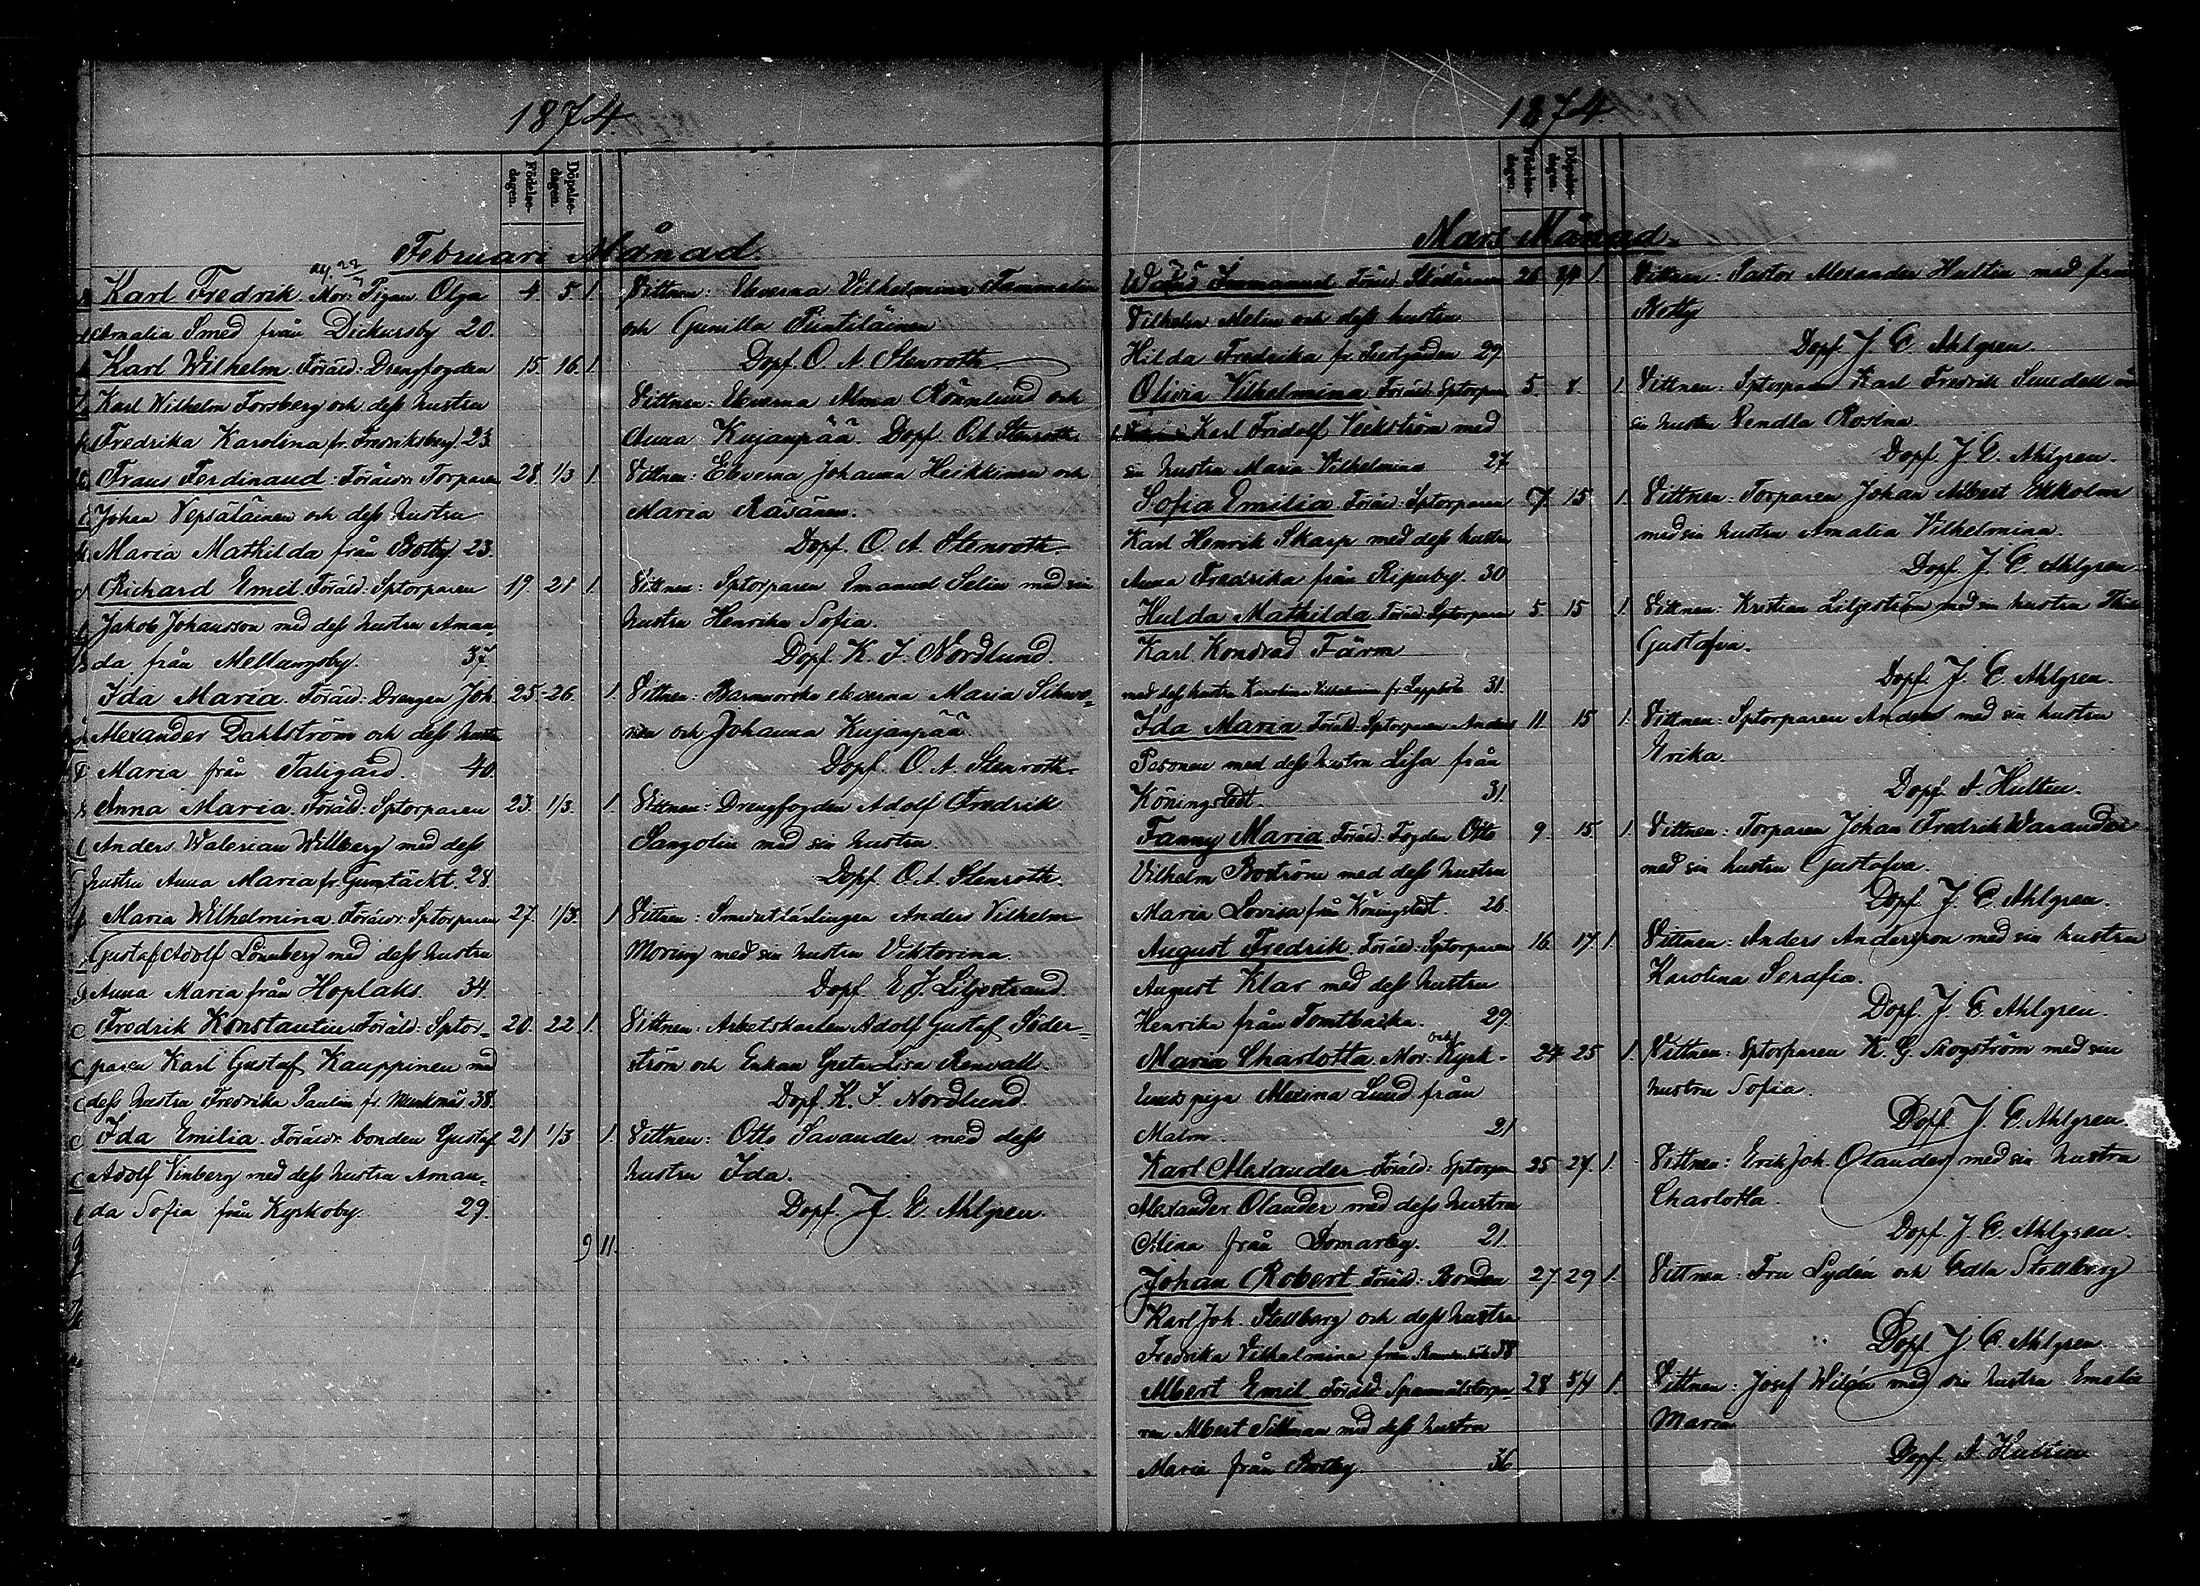 1874
Födelse-dagen. Döpelse-dagen.
Februari Månad.
Karl Fredrik. Mor: Pigan Olga 4 5 1
Amalia Smed från Dickursby 20.
Karl Wilhelm. Föräld: Drengfogden 15 16. 1.
Karl Wilhelm Forsberg och dess hustru
Fredrika Karolina fr. Fredriksberg. 23.
Frans Ferdinand: Föräldr: Torparen 28. 1/3 1.
Johan Vepsäläinen och dess hustru
Maria Mathilda från Botby 23.
Richard Emil. Föräld: Sptorparen 19. 21 1.
Jakob Johansson med dess hustru Aman-
da från Mellungsby. 37.
Ida Maria. Föräld: Drengen Joh. 25. 26. 1.
Alexander Dahlström och dess hustru
Maria från Taligård. 40.
Anna Maria. Föräld: Sptorparen 23. 1/3. 1.
Anders Walerian Willberg med dess
hustru Anna Maria fr. Gumtäckt. 28.
Maria Wilhelmina. Föräldr: Sptorparen 27. 1/3. 1
Gustaf Adolf Lönnberg med dess hustru
Anna Maria från Hoplaks. 34.
Fredrik Konstantin Föräld: Sptor- 20. 22 1.
paren Karl Gustaf Kauppinen med
dess hustru Fredrika Paulin fr. Munksnäs 38.
Ida Emilia. Föräldr: bonden Gustaf 21 1/3 1.
Adolf Vinberg med dess hustru Aman-
da Sofia från Kyrkoby. 29.
9 11.
Vittnen: Ekverna Vilhelmina Tammelin
och Gunilla
Dopf. O. A. Stenroth.
Vittnen: Ekverna Alma Rönnlund och
Anna Kujanpää. Dopf. O. A. Stenroth.
Vittnen: Ekverna Johanna Heikkinen och
Maria Räsänen.
Dopf. O. A. Stenroth.
Vittnen: Sptorparen Emanuel Selin med sin
hustru Henrika Sofia.
Dopf. K. J. Nordlund.
Vittnen: Barnmorska ekverna Maria Sihvo-
nen och Johanna Kujanpää
Dopf. O. A. Stenroth.
Vittnen: Drengfogden Adolf Fredrik
Sangolin med sin hustru
Dopf. O. A. Stenroth.
Vittnen: Smedslärlingen Anders Vilhelm
Moring med sin hustru Viktorina.
Dopf. E. J. Liljestrand.
Vittnen: Arbetskarlen Adolf Gustaf Söder-
ström och Enkan Greta Lisa Renvall.
Dopf. K. J. Nordlund.
Vittnen: Otto Savander med dess
hustru Ida.
Dopf. J. E. Ahlgren.
1874.
Födelse-dagen. Döpelse-dagen.
Mars Månad.
Immanuel Föräld: 26. 1.
Vilhelm Melin och dess hustru
Hilda Fredrika fr. 29
Olivia Vilhelmina Föräld: Sptorparen 5. 8 1.
Karl Fridolf Veckström med
sin hustru Maria Vilhelmina 27
Sofia Emilia. Föräld: Sptorparen 7. 15 1.
Karl Henrik Skarp med dess hustru
Anna Fredrika från Ripuby. 30
Hulda Mathilda Föräld: Sptorparen 5 15 1.
Karl Kondrad Färm
med dess hustru Karolina Vilhelmina fr. Lappböle 31.
Ida Maria Föräld: Sptorparen Anders 11 15 1.
Pesonen med dess hustru Lisa från
Köningstedt. 31.
Fanny Maria. Föräld: Fogden Otto 9. 15 1.
Vilhelm Boström med dess hustru
Maria Lovisa från Köningstedt. 26.
August Fredrik. Föräld: Sptorparen 16. 17. 1.
August Klar med dess hustru
Henrika från Tomtbacka. 29.
Maria Charlotta. Mor: Kyrk- 24 25 1.
piga Maxina Lund från
Malm. 21
Karl Alexander Föräld: Sptorpar 25 27. 1.
Alexander Olander med dess hustru
Mina från Domarby. 21.
Johan Robert Föräld: Bonden 27 29 1.
Karl Joh. Stellberg och dess hustru
Fredrika Vilhelmina från 38
Albert Emil Föräld: Spannmålstorpa- 28 5/4 1.
ren Albert Sillman med dess hustru
Maria från Botby. 36
Vittnen: Pastor Alexander Hultin med frun
Ketty
Dopf. J. E. Ahlgren.
Vittnen: Sptorparen Karl Fredrik Sundell m
sin hustru Vendla Rosina
Dopf. J. E. Ahlgren.
Vittnen: Torparen Johan Albert Ekholm
med sin hustru Amalia Vilhelmina.
Dopf. J. E. Ahlgren
Vittnen: Kristian Liljeström med sin hustru
Gustafva.
Dopf. J. E. Ahlgren.
Vittnen: Sptorparen Anders med sin hustru
Erika.
Dopf. A. Hultin.
Vittnen: Torparen Johan Fredrik Warander
med sin hustru Gustafva.
Dopf. J. E. Ahlgren.
Vittnen: Anders Andersson med sin hustru
Karolina Serafia.
Dopf. J. E. Ahlgren.
Vittnen: Sptorparen K. G. Skogström med sin
hustru Sofia.
Dopf. J. E. Ahlgren.
Vittnen: Erik Joh. Olander med sin hustru
Charlotta
Dopf. J. E. Ahlgren.
Vittnen: Fru Lydén och Edla Stellberg
Dopf. J. E. Ahlgren.
Vittnen: Josef Wilén med sin hustru Emalia
Maria
Dopf. A. Hultin